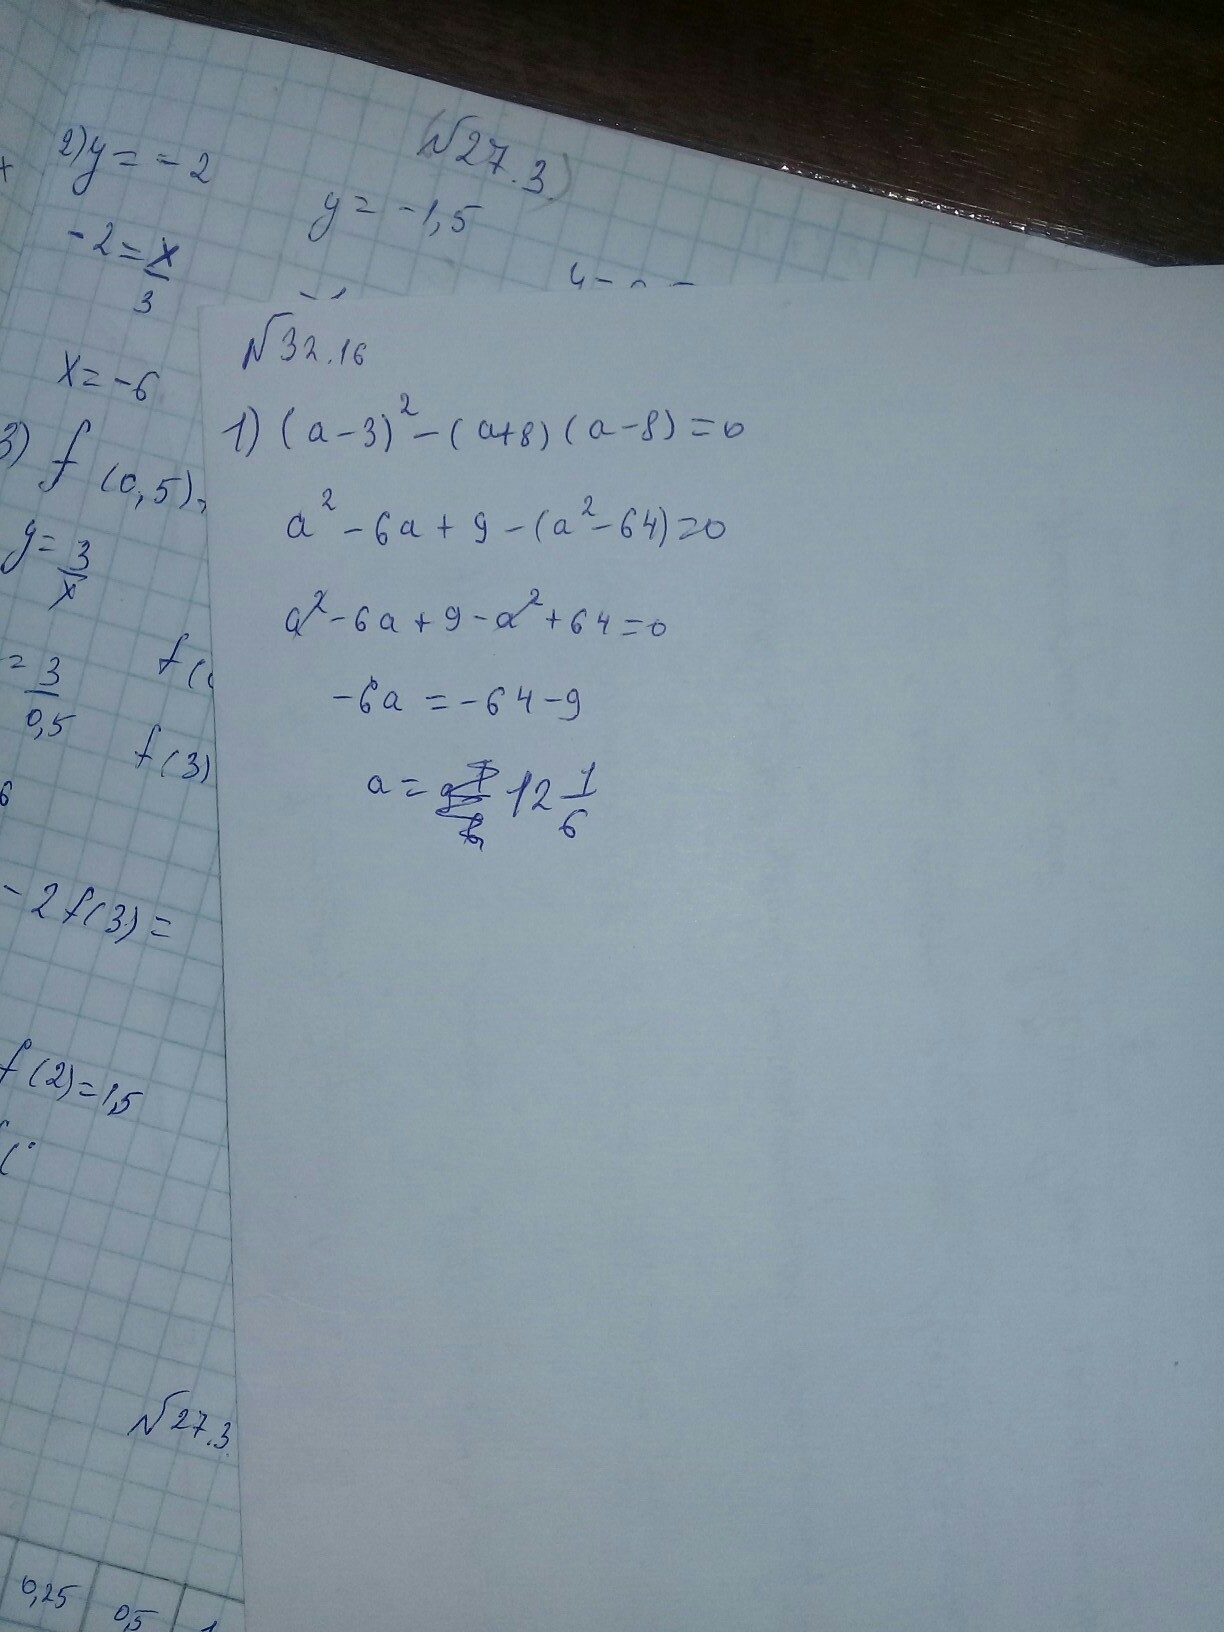 №27.3)
2) y = -2
y = -1,5
-2 = x/3
x = -6
3) f(0,5)
y = 3/x
= 3/0,5
f(3)
6
- 2f(3) =
f(2) = 1,5
№27.3
0,25 0,5
№32.16
1) (a-3)² - (a+8)(a-8) = 0
a² - 6a + 9 - (a² - 64) = 0
a² - 6a + 9 - a² + 64 = 0
-6a = -64 - 9
a = 12 1/6